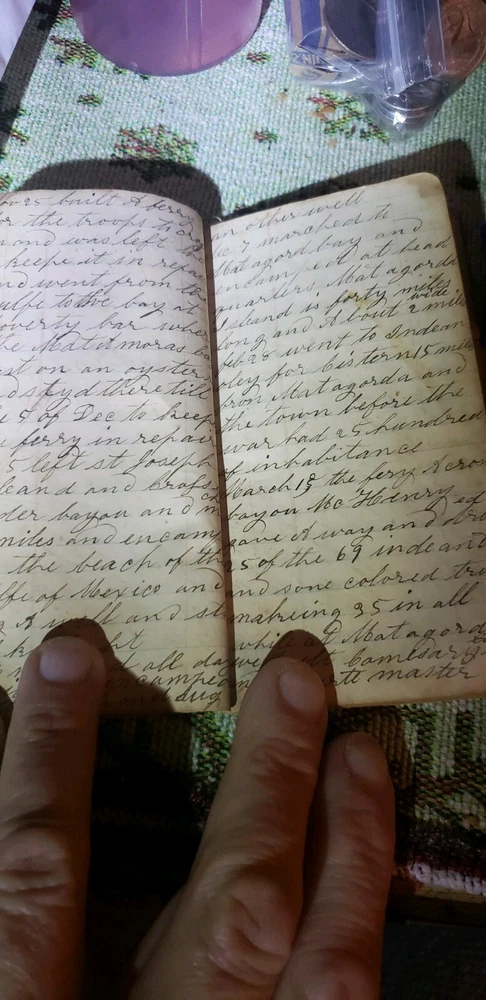 built A ferry
or the troops
and was left
keepe it in repair
nd went from the
ulfe to the bay at
overty bar wher
he Matitmoras
st on an oyster
d styd there till
e 5 of Dec to keep
e ferry in repair
5 left st Joseph
leand and
der bayou and
miles and encam
the beach of th
lfe of Mexico and
A well and st
ht
all da
encampe
dug
an other well
7 marched to
Matagord bay and
encamped at head
quarters Matagorda
Island is forty miles
long and About 2 miles
wide
feb 28 went to Indean
oley for Cistern 15 mile
from Matagorda and
the town before the
war had 25 hundred
of inhabitance
March 13 the fery Acros
bayou Mc Henry
gave A way and
25 of the 69 indeant
and sone colored tro
makeing 35 in all
while at Matagord
we Comisary
master